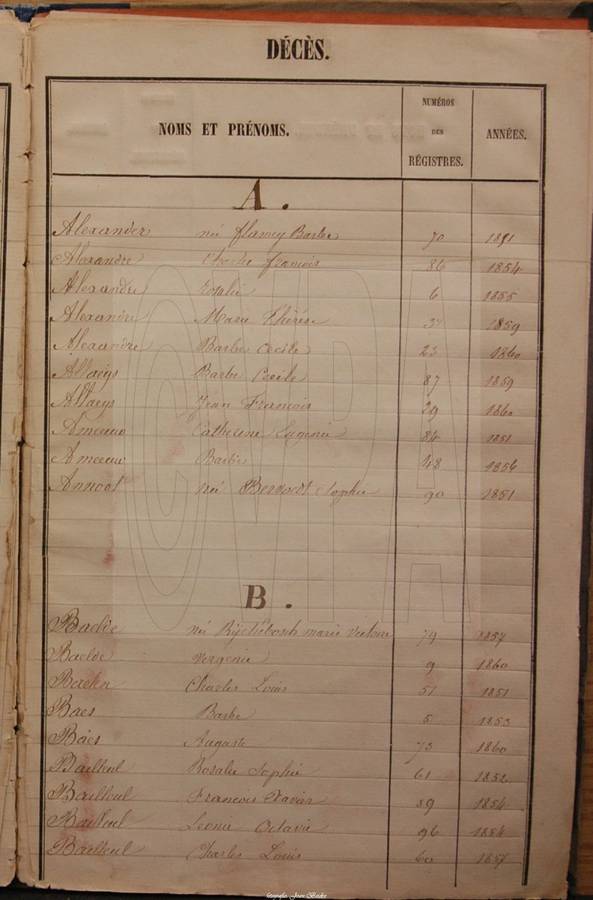 DÉCÈS.
NOMS ET PRÉNOMS. NUMÉROS DES RÉGISTRES. ANNÉES.
A.
Alexander née flamey Barbe 70 1851
Alexandre Charles francois 86 1854
Alexandre Sophie 6 1855
Alexandre Marie Thérèse 34 1859
Alexandre Barbe Cecile 23 1860
Allaeys Barbe Cecile 87 1859
Allaeys Jean Francois 29 1860
Ameeuw Catherine Eugenie 84 1851
Ameeuw Barbe 48 1856
Annoot née Bernaert Sophie 90 1851
B.
née marie Victoire 79 1857
Baelde Vergenie 9 1860
Charles Louis 51 1851
Baes Barbe 5 1853
Baes Auguste 73 1860
Bailleul Rosalie Sophie 61 1852
Bailleul Francois Xavier 39 1854
Bailleul Leonie Octavie 96 1854
Bailleul Charles Louis 60 1857